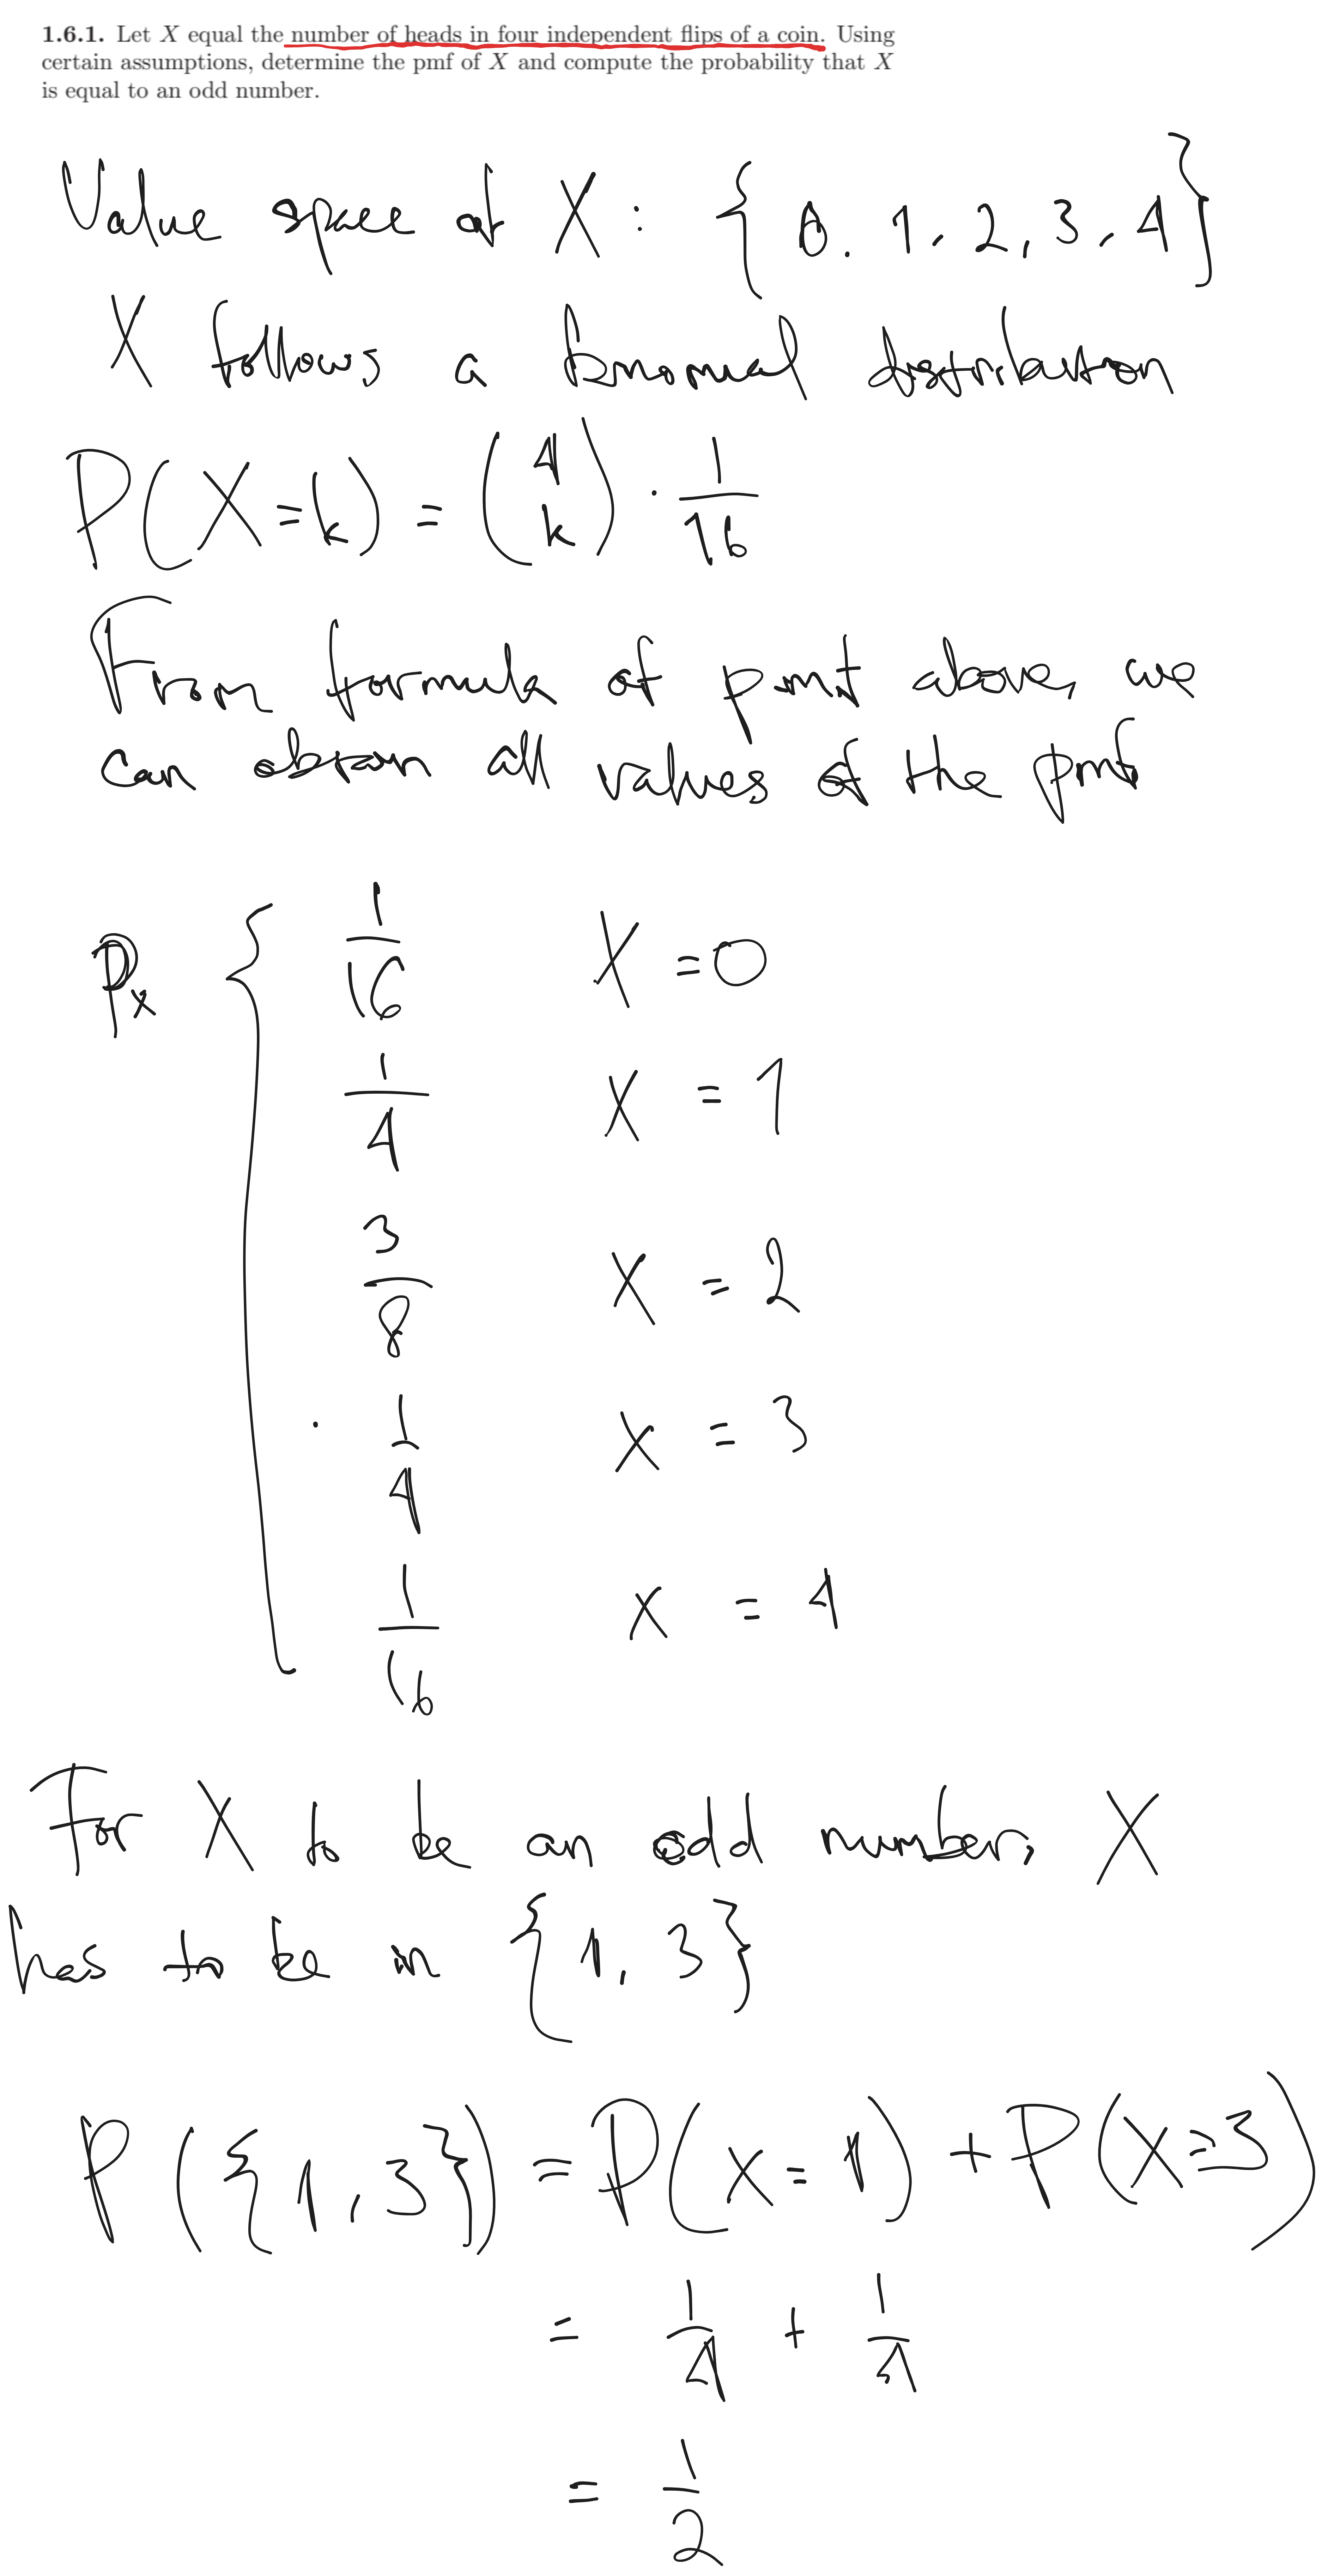 1.6.1. Let X equal the number of heads in four independent flips of a coin. Using
certain assumptions, determine the pmf of X and compute the probability that X
is equal to an odd number.
Value space of X : { 0, 1, 2, 3, 4 }
X follows a binomial distribution
P(X=k) = (4 k) · 1/16
From formula of pmf above, we
can obtain all values of the pmf
Px { 1/16 X = 0
1/4 X = 1
3/8 X = 2
1/4 X = 3
1/16 X = 4
For X to be an odd number, X
has to be in { 1, 3 }
P({1,3}) = P(X=1) + P(X=3)
= 1/4 + 1/4
= 1/2